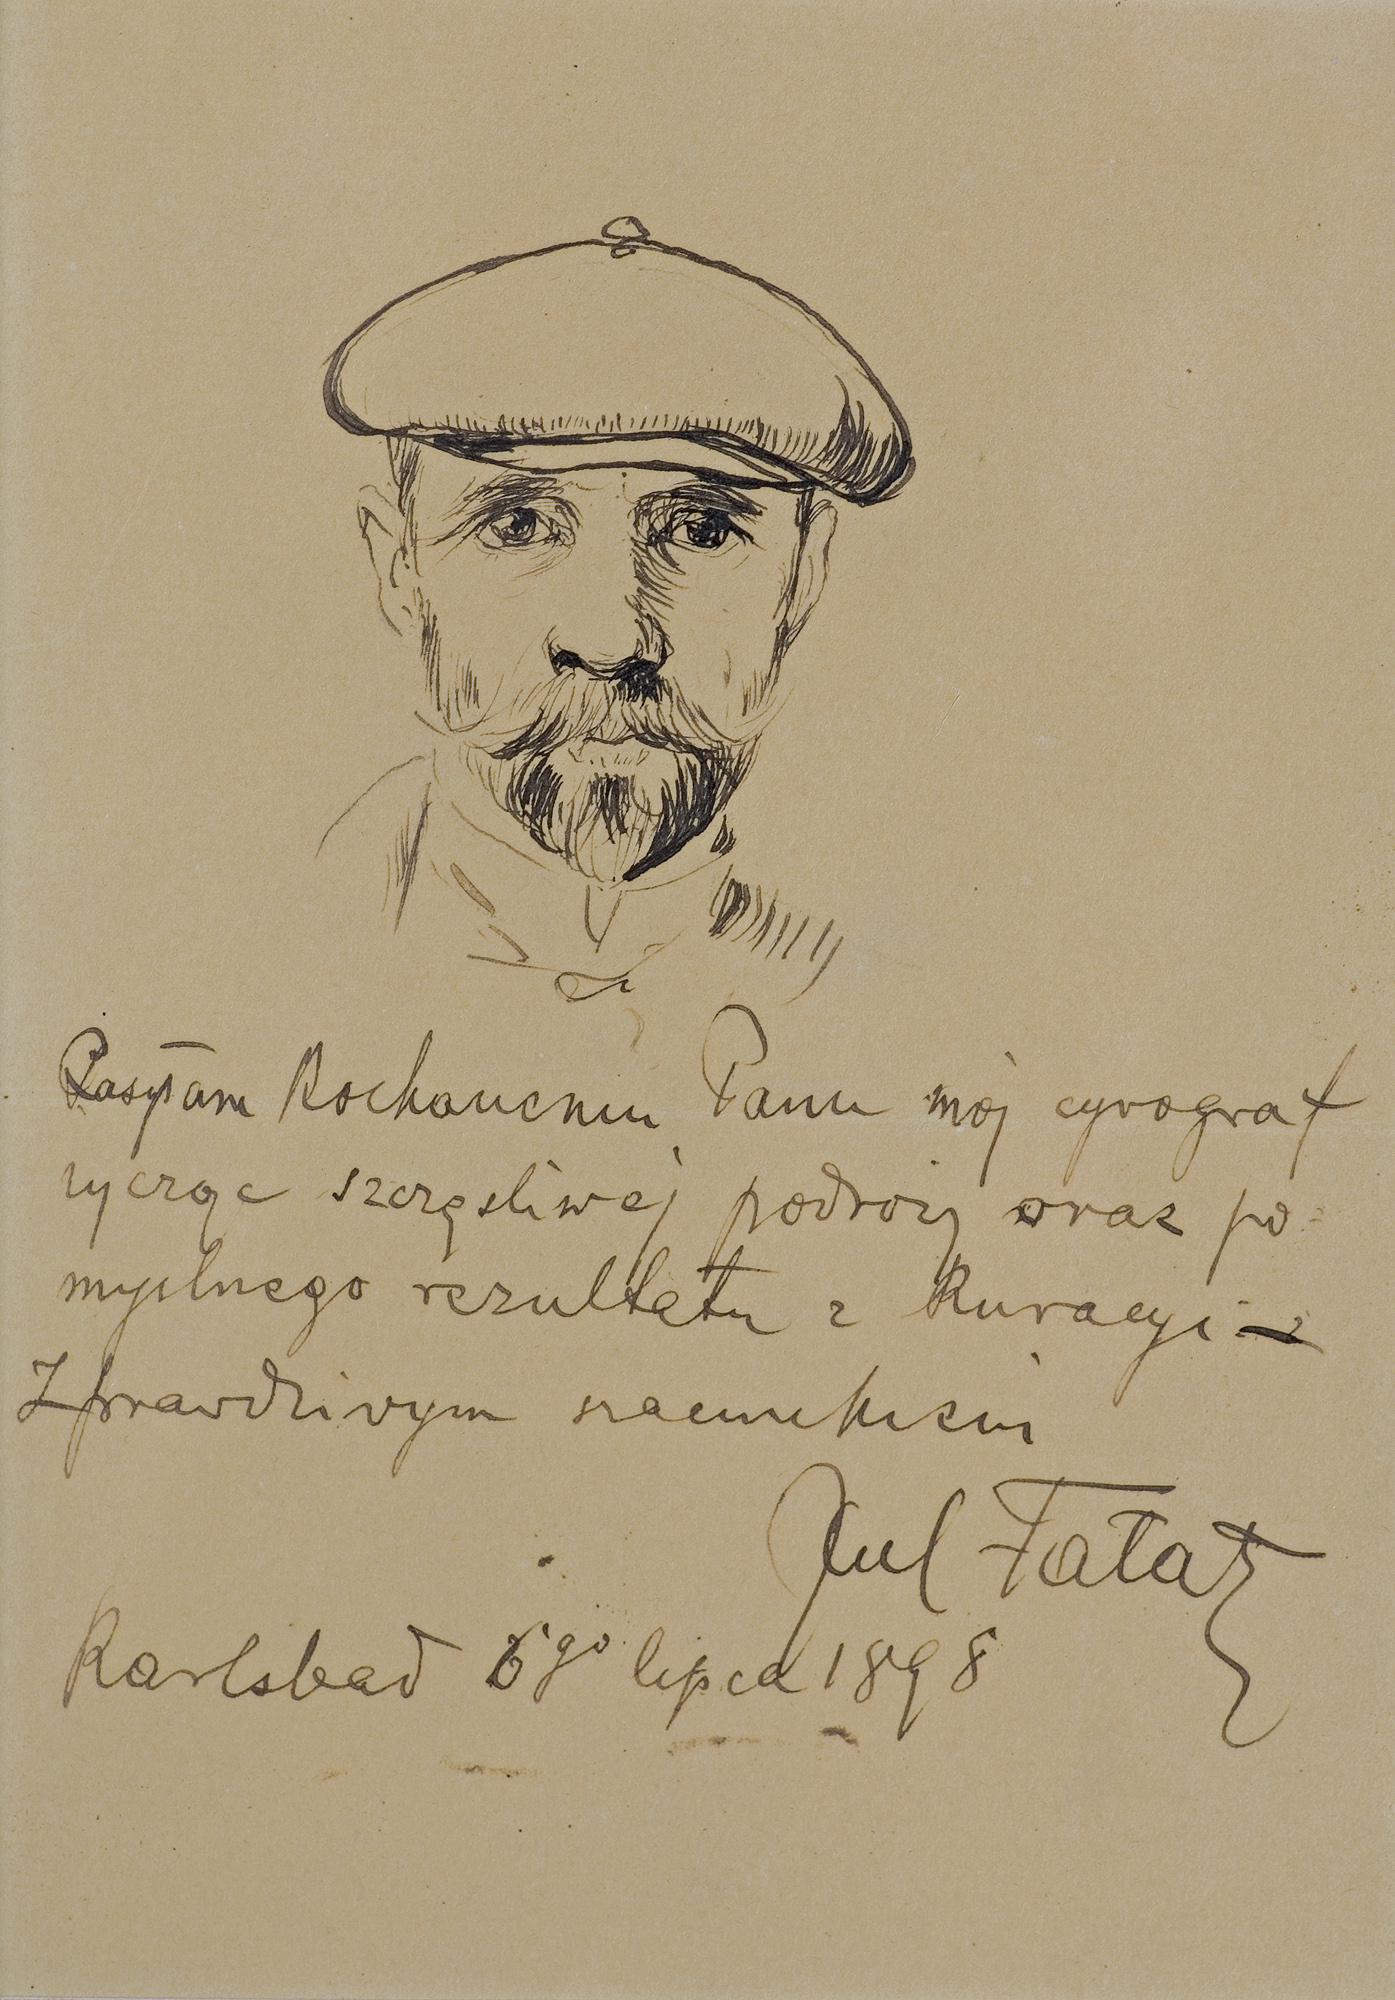 Pasyłam Kochanemu Panu mój cyrograf
życząc szczęśliwej podroży oraz po=
myślnego rezultatu z Kuracyi –
Z prawdziwym szacunkiem
Jul Fałat
Karlsbad 6go lipca 1898